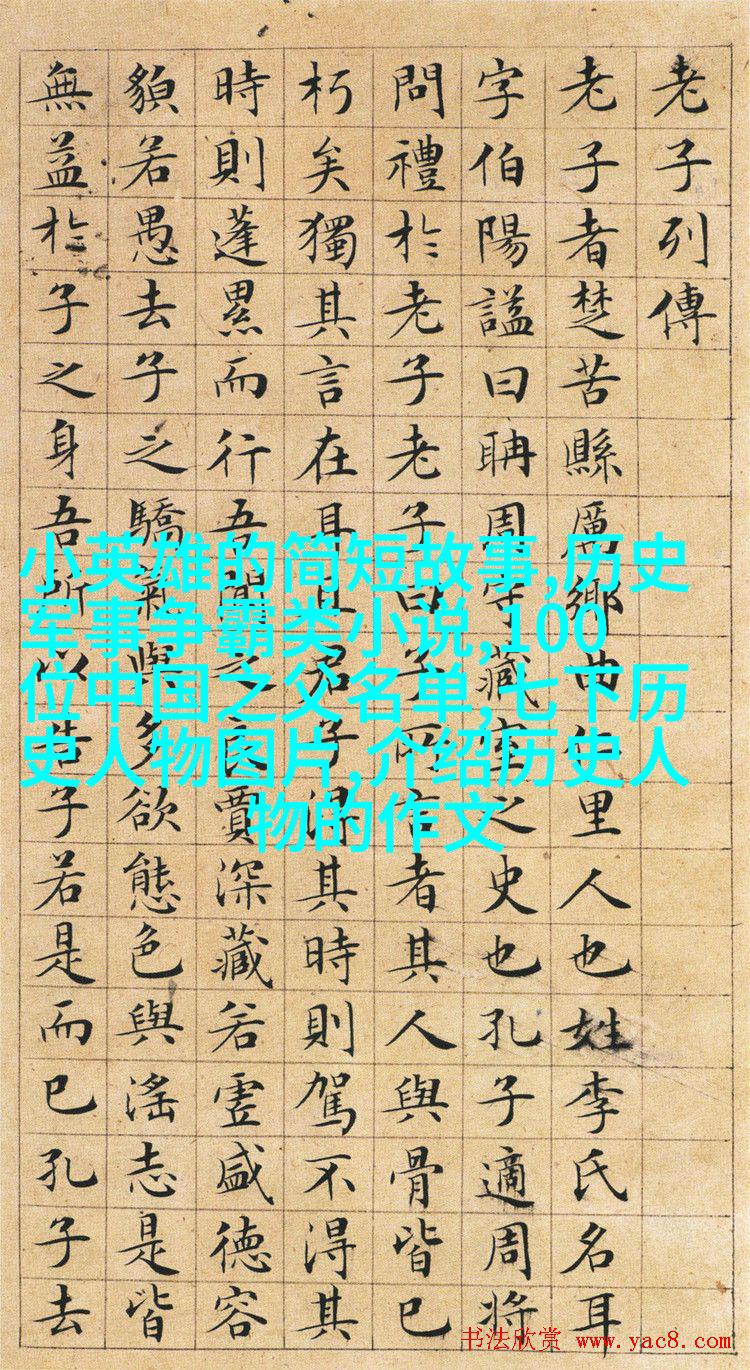 老子列傳
老子者楚苦縣厲鄉曲仁里人也姓李氏名耳
字伯陽謚曰聃周守藏室之史也孔子適周將
問禮於老子老子曰子所言者其人與骨皆已
朽矣獨其言在耳且君子得其時則駕不得其
時則蓬累而行吾聞之良賈深藏若虛盛德容
貌若愚去子之驕氣與多欲態色與淫志是皆
無益於子之身吾所以告子若是而已孔子去
小英雄的简短故事,历史
军事争霸类小说,100
位中国之父名单,七下历
史人物图片,介绍历史人
物的作文
书法欣赏 www.yac8.com